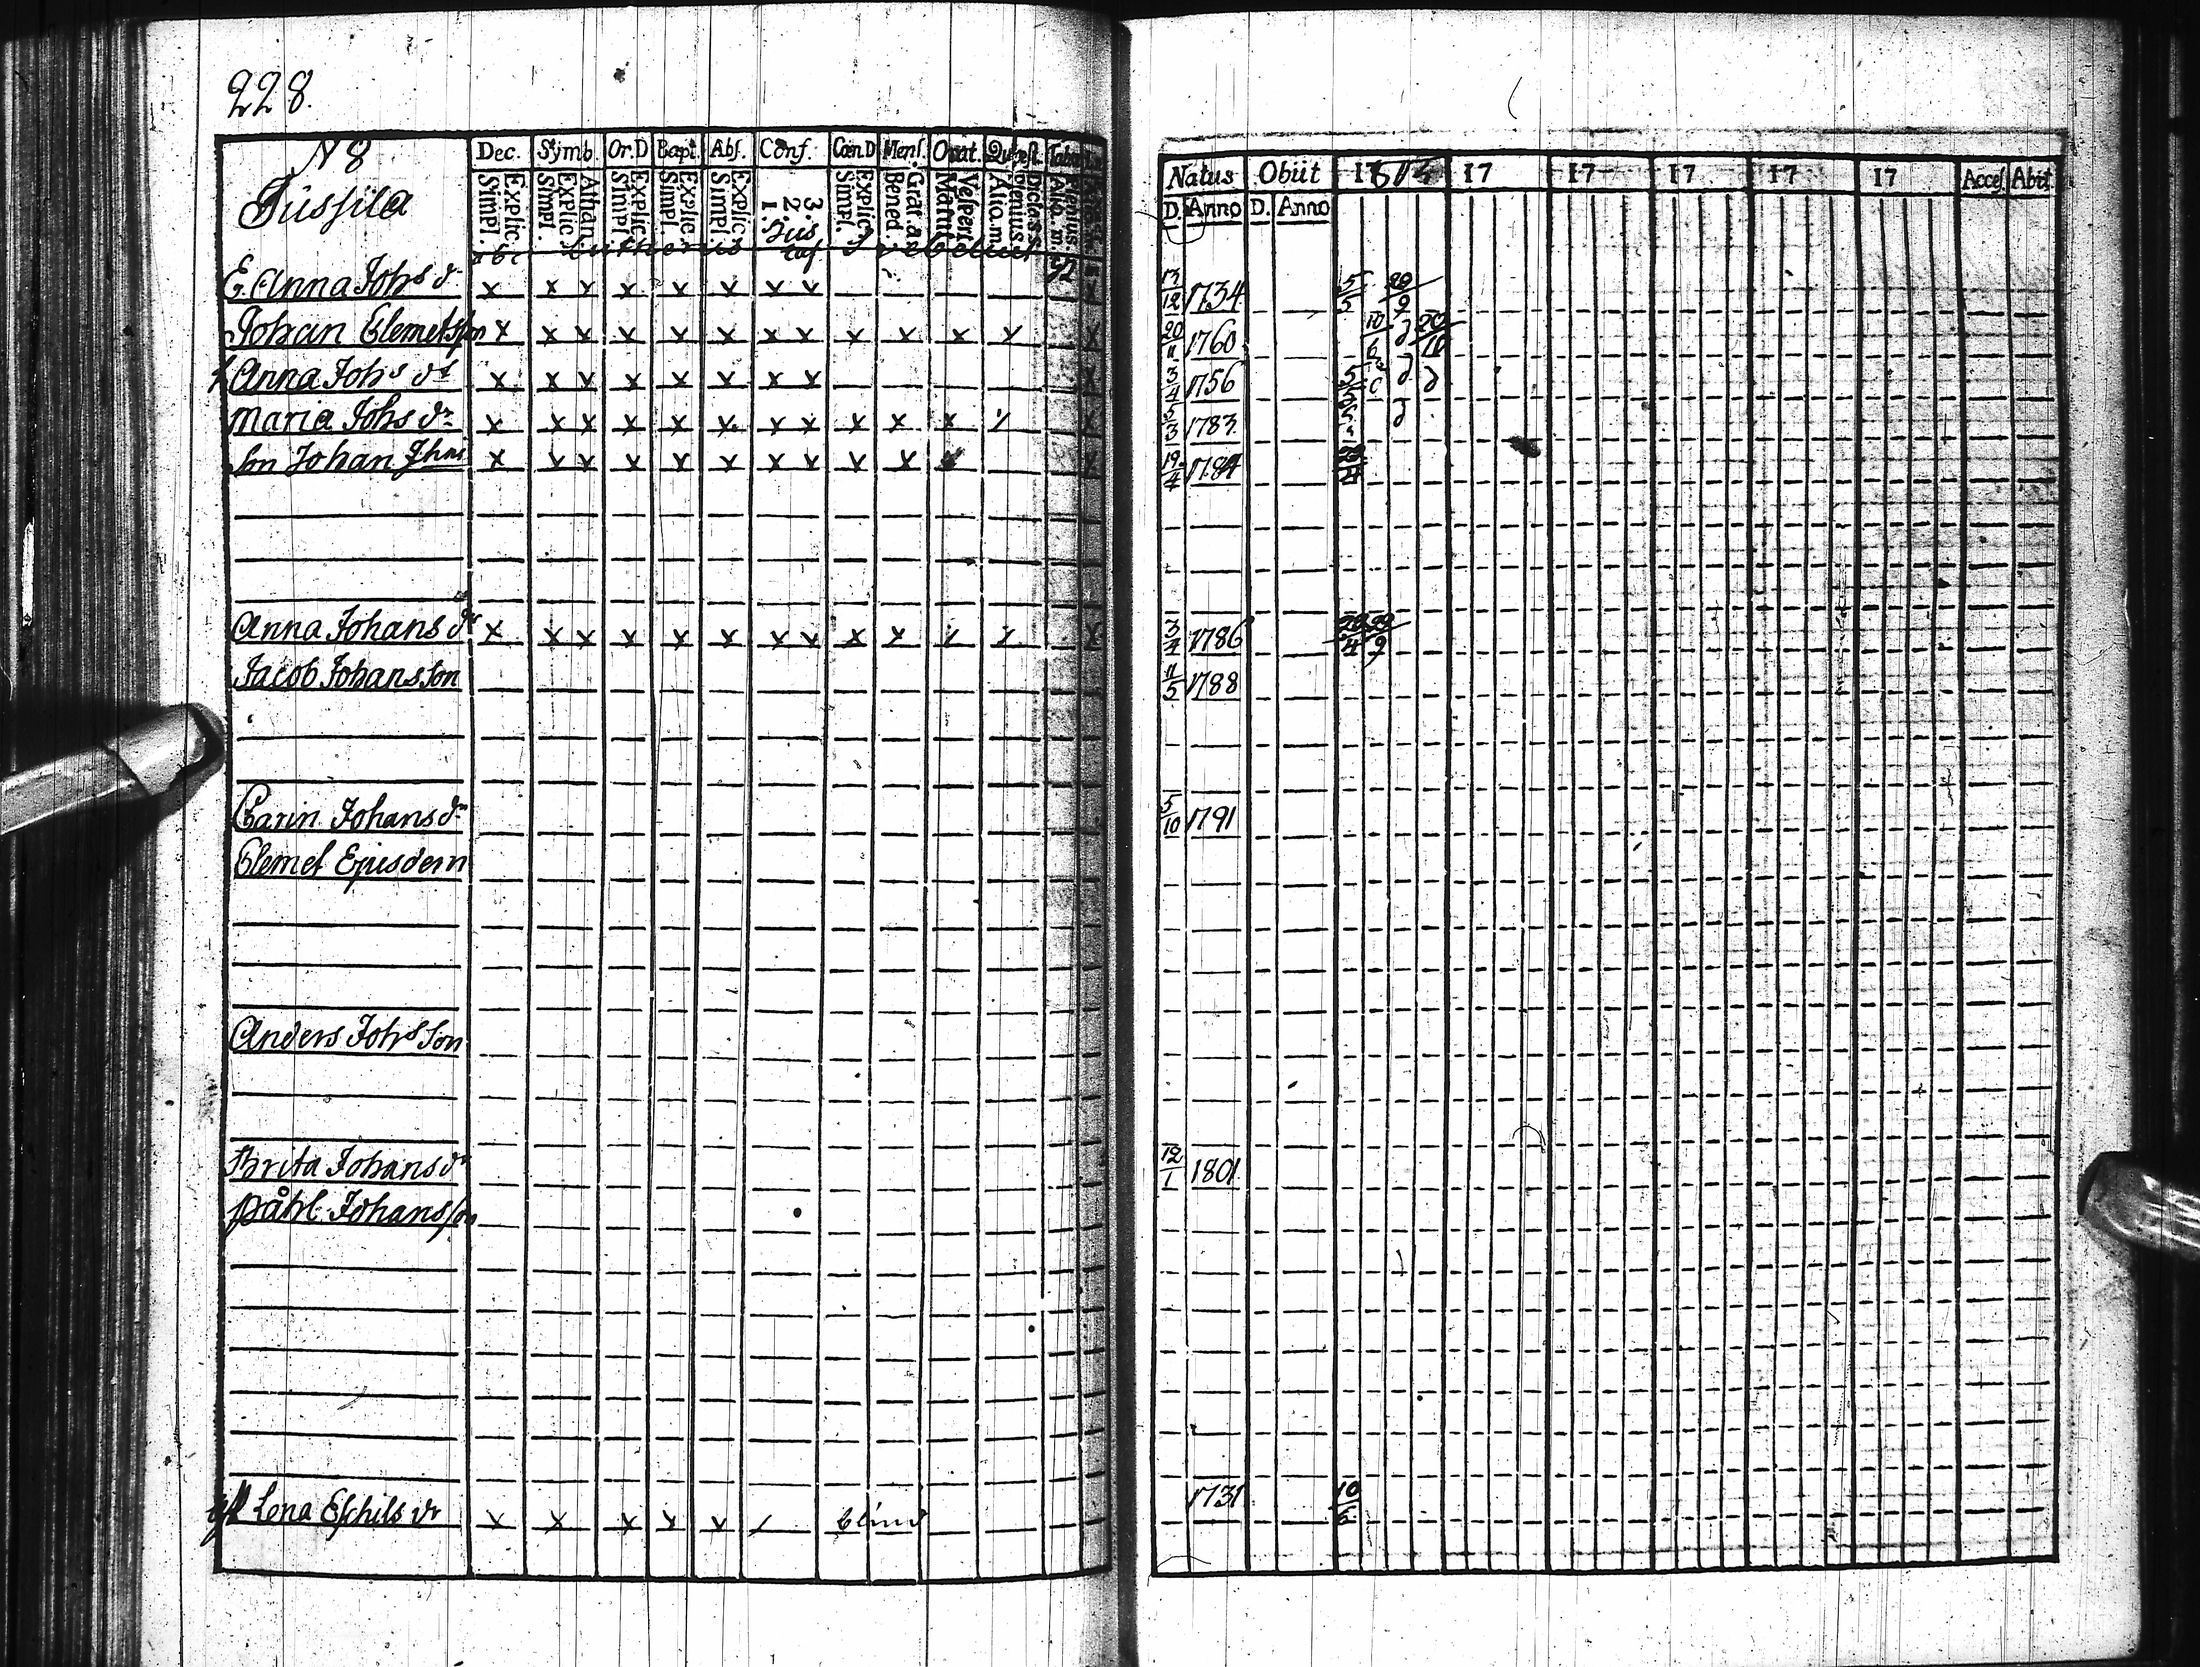 228.
N 8
Jussila
Dec. Symb. Or.D Bapt. Abs. Conf. Cœn.D Mens. Orat. Quæst. Tabul.
Explic. Simpl. Athan. Explic. Simpl. Explic. Simpl. Explic. Simpl. Explic. Simpl. 3. 2. 1. Explic. Simpl. Grat. a. Bened. Vespert. Matut. Dicta s.s. Plenius. Alio. m. Plenius. Alio. m.
Natus Obiit 1803 17 17 17 17 17 Acces. Abit.
D. Anno D. Anno
E. Anna Johs dr x x x x x x x x 13/12 1734 5/5 20/9
Johan Clemetsson x x x x x x x x x x x x x 20/11 1760 10/6 20/10
h Anna Johs dr x x x x x x x x x 3/4 1756 5/5
Maria Johs dr x x x x x x x x x x x x x 5/3 1783
son Johan Jhns x x x x x x x x x x x 19/4 1784
Anna Johans dr x x x x x x x x x x x x x 3/4 1786 20/9
Jacob Johansson 11/5 1788
Carin Johans dr 5/10 1791
Clemet Ejusdem
Anders Johs son
Brita Johans dr 12/1 1801
Påhl Johansson
Lena Eschils dr x x x x x blind 1731 10/6